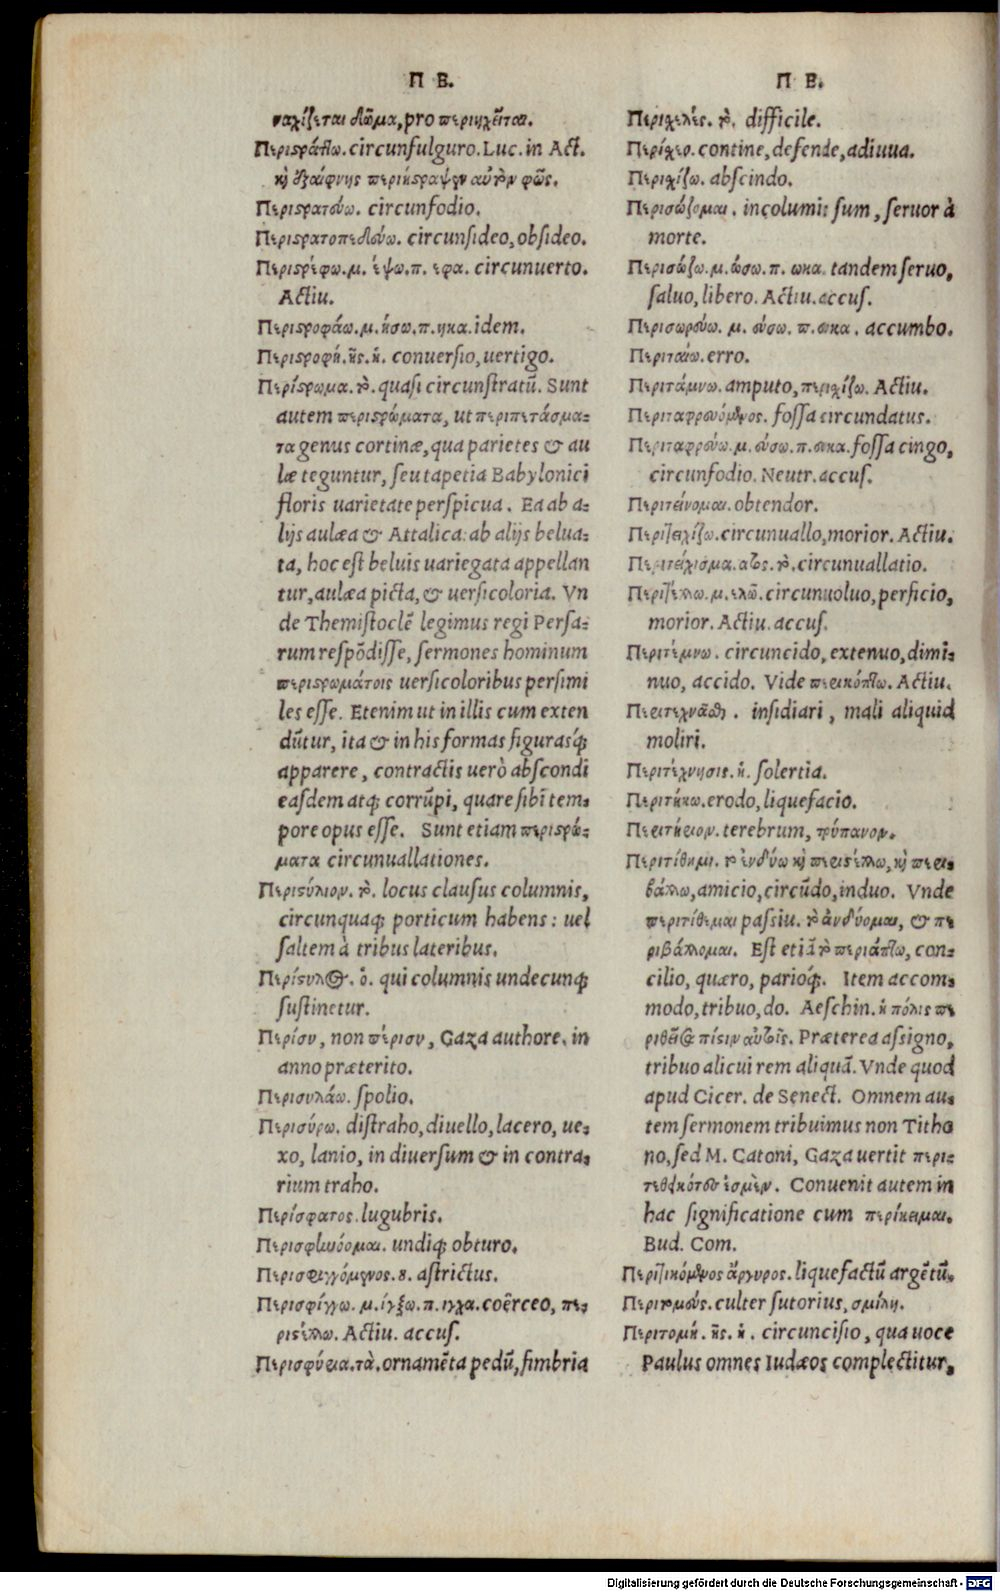 Π Ε.
ναχίζεται δῶμα, pro περιηχεῖται.
Περιστράπτω. circunfulguro. Luc. in Act.
καὶ ἐξαίφνης περιήστραψεν αὐτὸν φῶς.
Περιστρατεύω. circunfodio.
Περιστρατοπεδεύω. circunsideo, obsideo.
Περιστρέφω. μ. έψω. π. εφα. circunuerto.
Actiu.
Περιστροφάω. μ. ήσω. π. ηκα. idem.
Περιστροφή. ῆς. ἡ. conuersio, uertigo.
Περίστρωμα. τὸ. quasi circunstratū. Sunt
autem περιστρώματα, ut περιπετάσμα-
τα genus cortinæ, qua parietes & au
læ teguntur, seu tapetia Babylonici
floris uarietate perspicua. Ea ab a-
lijs aulæa & Attalica: ab alijs belua-
ta, hoc est beluis uariegata appellan
tur, aulæa picta, & uersicoloria. Vn
de Themistoclē legimus regi Persa-
rum respōdisse, sermones hominum
περιστρωμάτοις uersicoloribus persimi
les esse. Etenim ut in illis cum exten
dūtur, ita & in his formas figurasq́;
apparere, contractis uerò abscondi
easdem atq; corrūpi, quare sibi tem-
pore opus esse. Sunt etiam περιστρώ-
ματα circunuallationes.
Περιστύλιον. τὸ. locus clausus columnis,
circunquaq; porticum habens: uel
saltem à tribus lateribus.
Περίστυλος. ὁ. qui columnis undecunq;
sustinetur.
Περίσυ, non πέρισυ, Gaza authore. in
anno præterito.
Περισυλάω. spolio.
Περισύρω. distraho, diuello, lacero, ue-
xo, lanio, in diuersum & in contra-
rium traho.
Περίσφατος. lugubris.
Περισφηνόομαι. undiq; obturo.
Περισφιγγόμενος. ου. astrictus.
Περισφίγγω. μ. ίγξω. π. ιγχα. coërceo, πε-
ριστέλλω. Actiu. accus.
Περισφύρια. τὰ. ornamēta pedū, fimbria
Π Ε.
Περισχελές. τὸ. difficile.
Περίσχεο. contine, defende, adiuua.
Περισχίζω. abscindo.
Περισώζομαι. incolumis sum, seruor à
morte.
Περισώζω. μ. ώσω. π. ωκα. tandem seruo,
saluo, libero. Actiu. accus.
Περισωρεύω. μ. εύσω. π. ευκα. accumbo.
Περιταίω. erro.
Περιτάμνω. amputo, περισχίζω. Actiu.
Περιταφρευόμενος. fossa circundatus.
Περιταφρεύω. μ. εύσω. π. ευκα. fossa cingo,
circunfodio. Neutr. accus.
Περιτείνομαι. obtendor.
Περιτειχίζω. circunuallo, morior. Actiu.
Περιτείχισμα. ατος. τὸ. circunuallatio.
Περιτέλλω. μ. ελῶ. circunuoluo, perficio,
morior. Actiu. accus.
Περιτέμνω. circuncido, extenuo, dimi-
nuo, accido. Vide περικόπτω. Actiu.
Περιτεχνᾶσθαι. insidiari, mali aliquid
moliri.
Περιτέχνησις. ἡ. solertia.
Περιτήκω. erodo, liquefacio.
Περιτήριον. terebrum, τρύπανον.
Περιτίθημι. τὸ ἐνδύω καὶ περιστέλλω, καὶ περι-
βάλλω, amicio, circūdo, induo. Vnde
περιτίθεμαι passiu. τὸ ἀνδύομαι, & πε
ριβάλλομαι. Est etiā τὸ περιάπτω, con-
cilio, quæro, parioq́;. Item accom-
modo, tribuo, do. Aeschin. ἡ πόλις πε
ριθεῖσα πίστιν αὐτοῖς. Præterea assigno,
tribuo alicui rem aliquā. Vnde quod
apud Cicer. de Senect. Omnem au-
tem sermonem tribuimus non Titho
no, sed M. Catoni, Gaza uertit περι-
τεθηκότες ἐσμὲν. Conuenit autem in
hac significatione cum περίκειμαι.
Bud. Com.
Περιτηκόμενος ἄργυρος. liquefactū argētū.
Περιτομεύς. culter sutorius, σμίλη.
Περιτομή. ῆς. ἡ. circuncisio, qua uoce
Paulus omnes Iudæos complectitur,
Digitalisierung gefördert durch die Deutsche Forschungsgemeinschaft - DFG